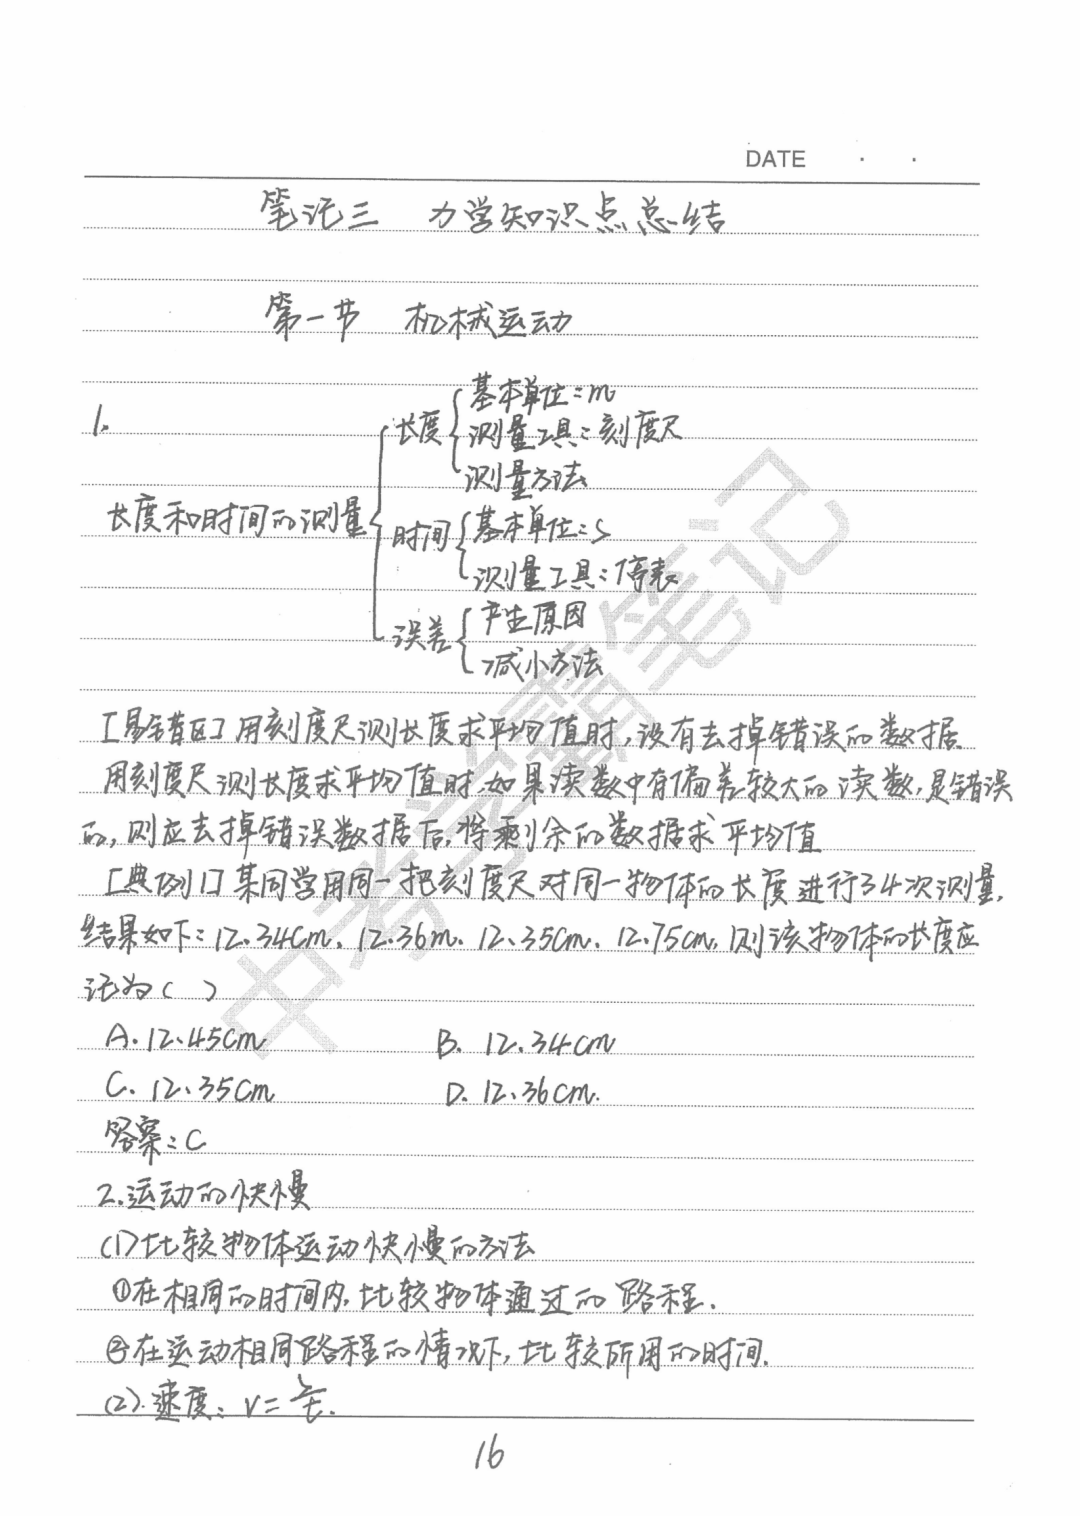 DATE . .
笔记三 力学知识点总结
第一节 机械运动
1.
长度和时间的测量
长度
基本单位:m
测量工具:刻度尺
测量方法
时间
基本单位:s
测量工具:停表
误差
产生原因
减小方法
[易错区]用刻度尺测长度求平均值时,没有去掉错误的数据.
用刻度尺测长度求平均值时,如果读数中有偏差较大的读数,是错误
的,则应去掉错误数据后,将剩余的数据求平均值
[典例1]某同学用同一把刻度尺对同一物体的长度进行34次测量,
结果如下:12.34cm、12.36m、12.35cm、12.75cm,则该物体的长度应
记为( )
A.12.45cm B. 12.34cm
C. 12.35cm D. 12.36cm.
答案:C
2.运动的快慢
(1)比较物体运动快慢的方法
①在相同的时间内,比较物体通过的路程.
②在运动相同路程的情况下,比较所用的时间.
(2).速度: v=s/t.
16
中考学霸笔记